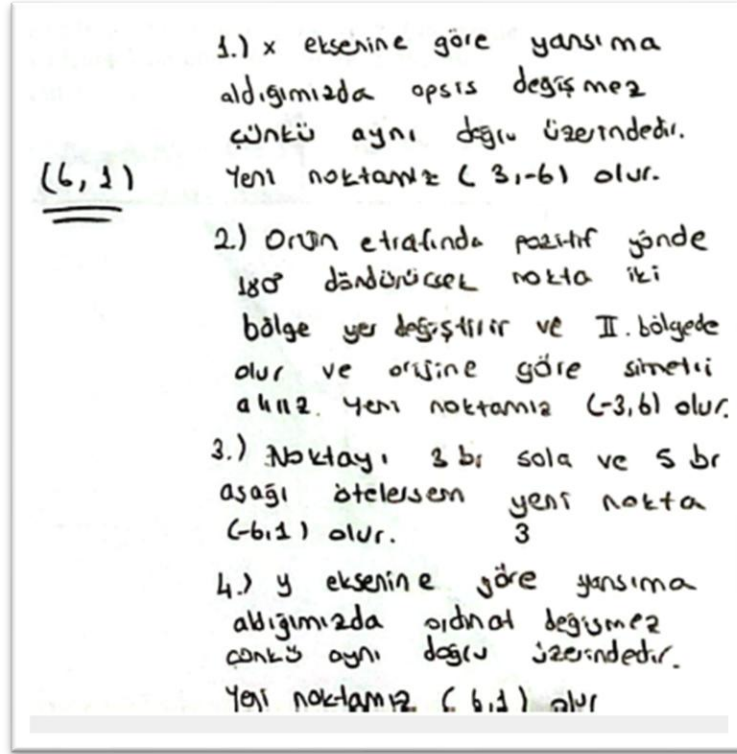 1.) x eksenine göre yansıma
aldığımızda apsis değişmez
çünkü aynı doğru üzerindedir.
Yeni noktamız (3,-6) olur.
(6,1)
2.) Orjin etrafında pozitif yönde
180° döndürürsek nokta iki
bölge yer değiştirir ve II. bölgede
olur ve orijine göre simetri
alırız. Yeni noktamız (-3,6) olur.
3.) Noktayı 3 br sola ve 5 br
aşağı ötelersem yeni nokta
(-6,1) olur.
3
4.) y eksenine göre yansıma
aldığımızda ordinat değişmez
çünkü aynı doğru üzerindedir.
Yeni noktamız (6,1) olur